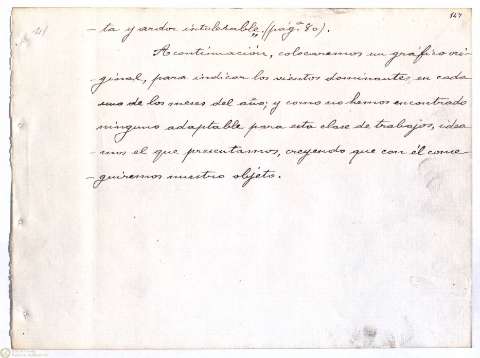 127
-ta y ardor intolerable." (pág.ª 80).
A continuación, colocaremos un gráfico ori-
-ginal, para indicar los vientos dominantes, en cada
uno de los meses del año; y como no hemos encontrado
ninguno adaptable para esta clase de trabajos, idea-
-mos el que presentamos, creyendo que con él conse-
-guiremos nuestro objeto.